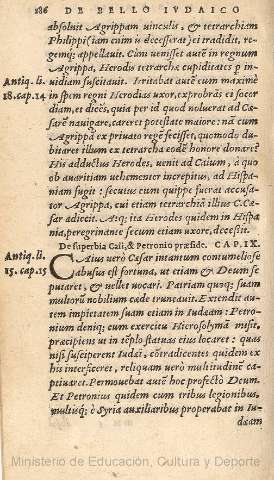 186 DE BELLO IVDAICO
absoluit Agrippam uinculis, & tetrarchiam
Philippi (iam enim is decesserat) ei tradidit, re-
gemq; appellauit. Cùm uenisset autē in regnum
Agrippa, Herodis tetrarchæ cupiditates p in-
uidiam suscitauit. Irritabat autē cum maximè
in spem regni Herodias uxor, exprobrās ei socor
diam, et dicēs, quia per id quod nolucrat ad Cæ-
sarē nauigare, careret potestate maiore: nā cum
Agrippā ex priuato regē fecisset, quomodo du-
bitaret illum ex tetrarcha eodē honore donare?
His adductus Herodes, uenit ad Caium, à quo
ob auaritiam uehementer increpitus, ad Hispa-
niam fugit: secutus cum quippe fuerat accusa-
tor Agrippa, cui etiam tetrarchiā illius C. Cæ-
sar adiecit. Atq; ita Herodes quidem in Hispa
nia, peregrinante secum etiam uxore, decessit.
De superbia Caii, & Petronio præside. CAP. IX.
CAius uerò Cæsar intantum contumeliose
abusus est fortuna, ut etiam & Deum se
putaret, & uellet uocari. Patriam quoq; suam
multorū nobilium cæde truncauit. Extendit au
tem impietatem suam etiam in Iudæam: Petro-
nium deniq; cum exercitu Hierosolymā misit,
præcipiens ut in tēplo statuas eius locaret: quas
nisi susciperent Iudæi, cōtradicentes quidem ex
his interficeret, reliquam uerò multitudinē ca-
ptiuaret. Permouebat autē hoc profectò Deum.
Et Petronius quidem cum tribus legionibus,
multisq; è Syria auxiliaribus properabat in Iu
dæam
Antiq. li.
18. cap. 14
Antiq. li.
15. cap. 15
Ministerio de Educación, Cultura y Deporte